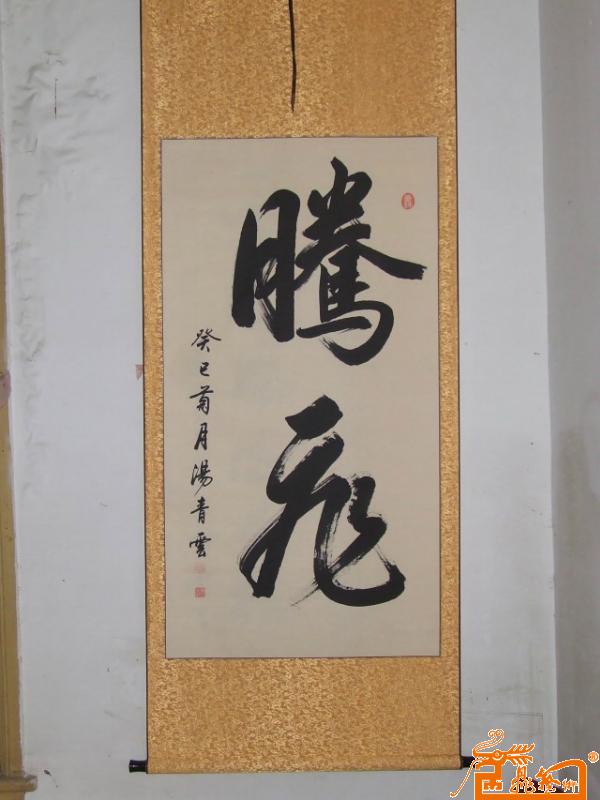 騰飛
癸巳菊月湯青雲